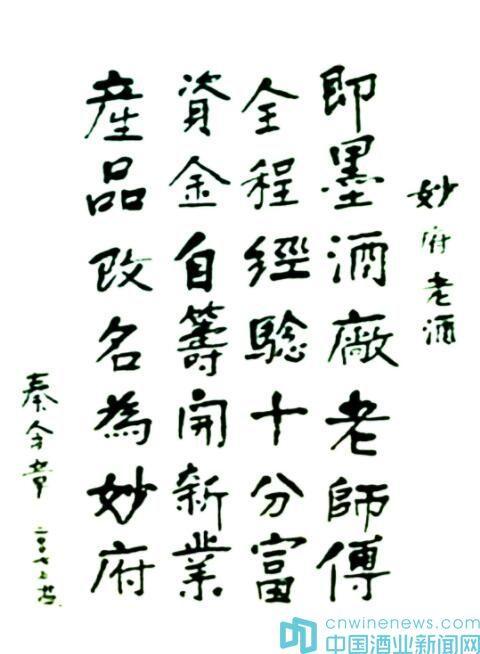 妙府老酒
即墨酒廠老師傅
全程經騐十分富
資金自籌開新業
産品改名為妙府
秦含章
cnwinenews.com
中国酒业新闻网